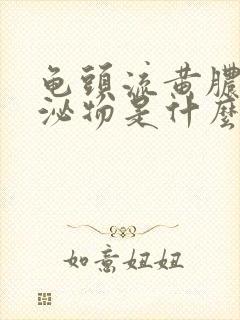 龟頭流黄膿
泌物是什麼
如意妞妞